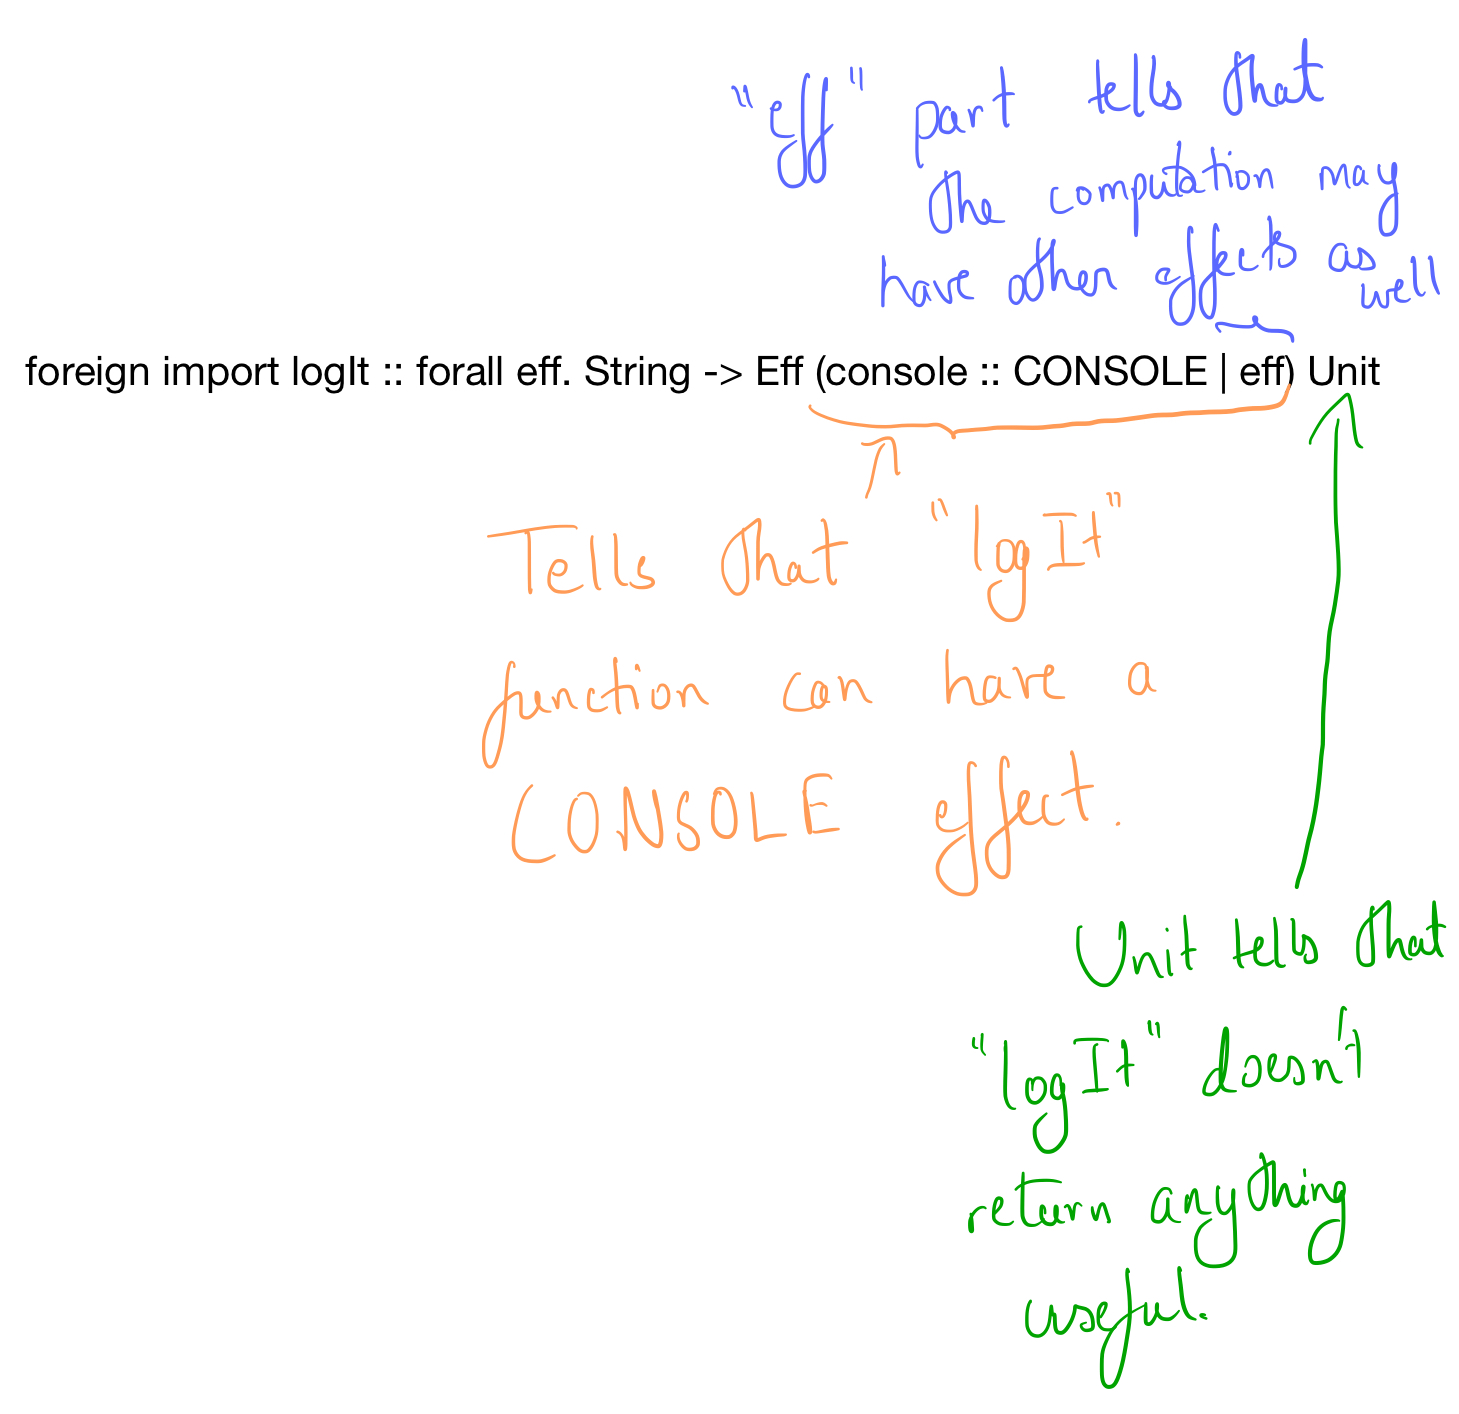 "eff" part tells that
the computation may
have other effects as
well
foreign import logIt :: forall eff. String -> Eff (console :: CONSOLE | eff) Unit
Tells that "logIt"
function can have a
CONSOLE effect.
Unit tells that
"logIt" doesn't
return anything
useful.